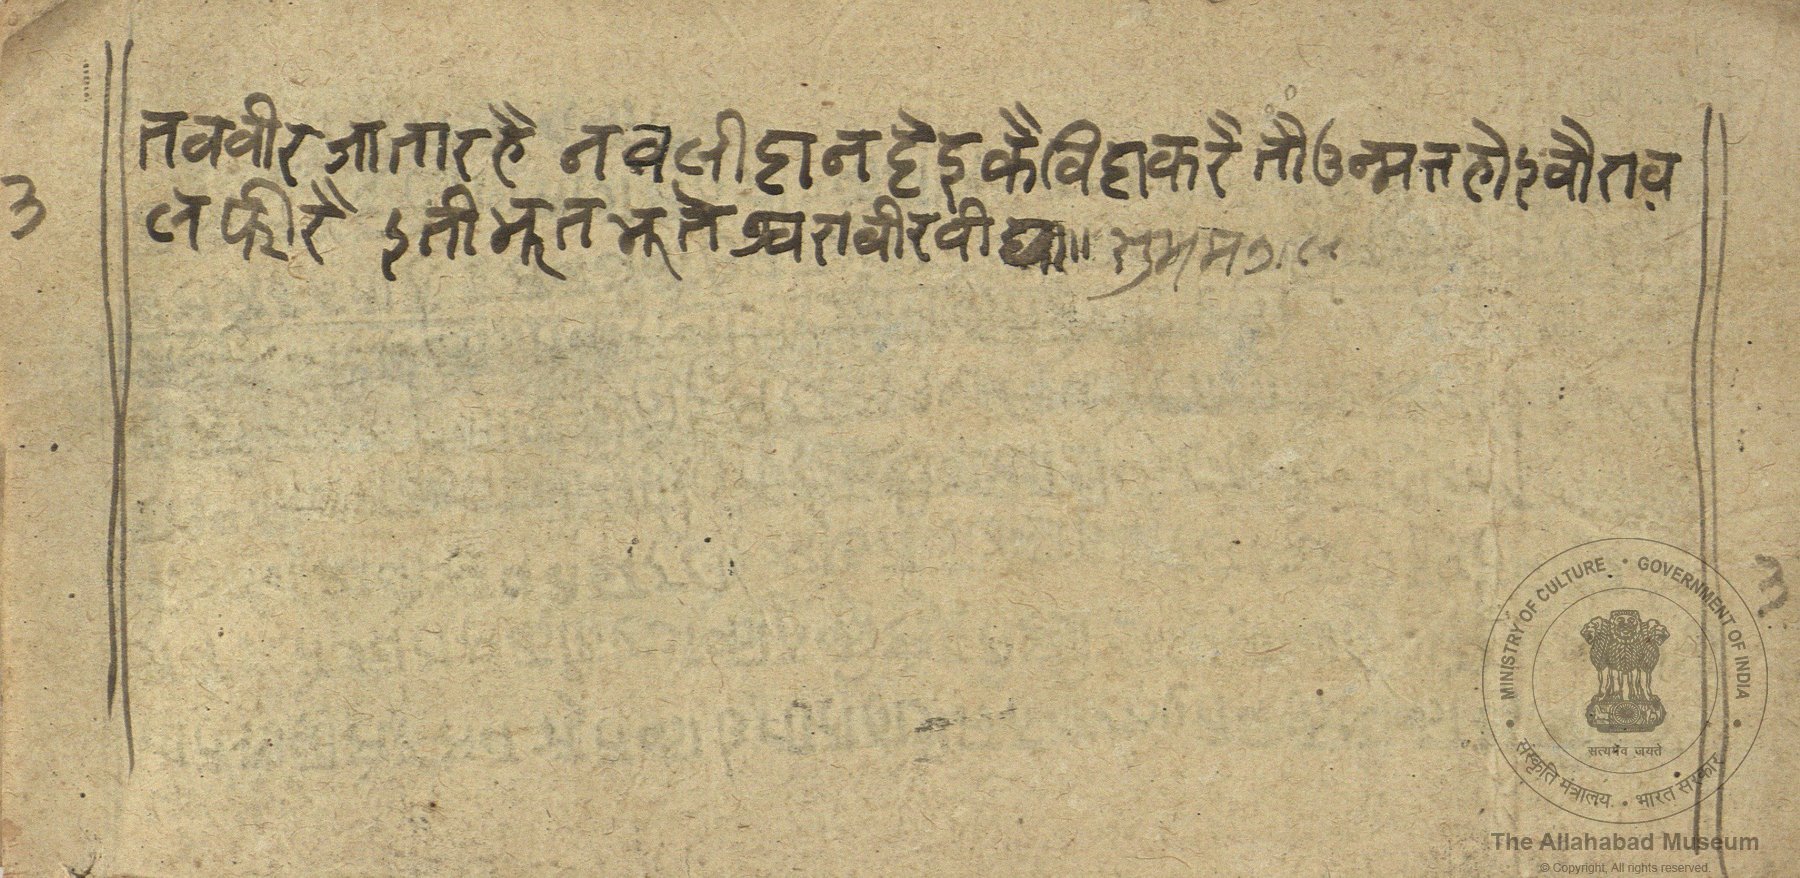 ३
तववीरजातारहै नवलीदानदेइकैविदाकरै तौउन्मत्तहोइवौराव
लेफीरै इतीभूतभूतेश्वरावीरवी ॥ सुभम
MINISTRY OF CULTURE • GOVERNMENT OF INDIA
सत्यमेव जयते
संस्कृति मंत्रालय • भारत सरकार
The Allahabad Museum
© Copyright, All rights reserved.